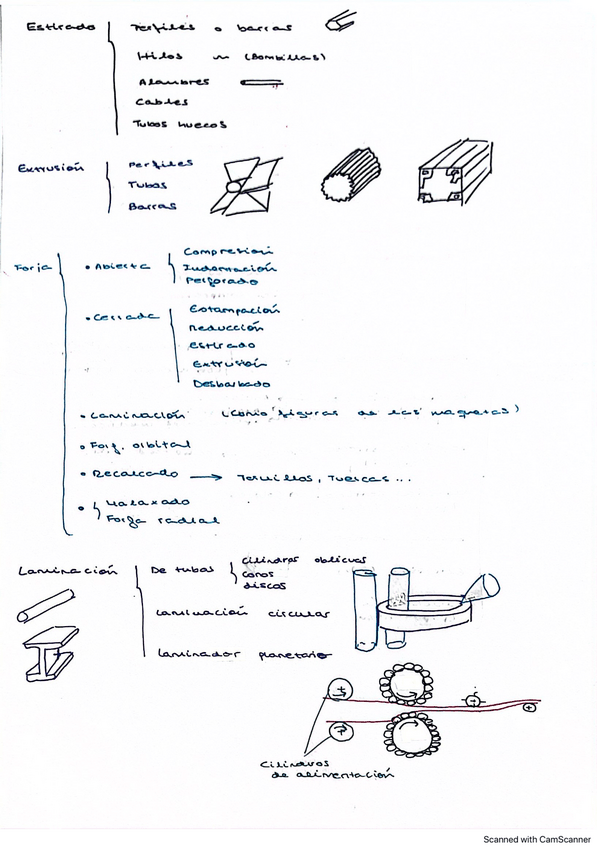 Estirado Perfiles o barras
Hilos (Bombillas)
Alambres
Cables
Tubos huecos
Extrusión Perfiles
Tubos
Barras
Forja • Abierta Compresion
Indornación
Perforado
• Cerrada Estampación
Reducción
estirado
Extrusión
Desbarbado
• Laminación (como figuras de las maquetas)
• Forj. orbital
• Recalcado → Tornillos, Tuercas ...
• Malaxado
Forja radial
Laminación De tubos cilindros oblicuos
conos
discos
Laminación circular
Laminador planetario
Cilindros
de alimentación
Scanned with CamScanner